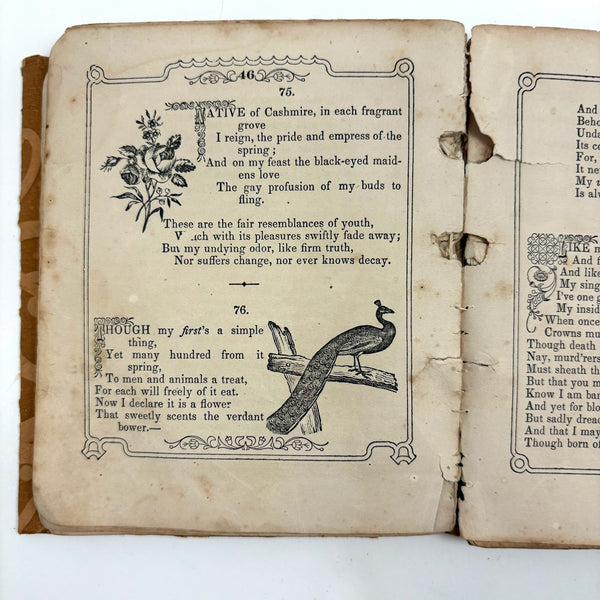 46
75.
NATIVE of Cashmire, in each fragrant
grove
I reign, the pride and empress of the
spring ;
And on my feast the black-eyed maid-
ens love
The gay profusion of my buds to
fling.
These are the fair resemblances of youth,
W ich with its pleasures swiftly fade away;
But my undying odor, like firm truth,
Nor suffers change, nor ever knows decay.
76.
THOUGH my first's a simple
thing,
Yet many hundred from it
spring,
To men and animals a treat,
For each will freely of it eat.
Now I declare it is a flower
That sweetly scents the verdant
bower.—
And
Beho
Unda
Its co
For,
It ne
My t
Is alv
LIKE m
And f
And like
My sing
I've one g
My insid
When once
Crowns mu
Though death
Nay, murd'rers
Must sheath th
But that you m
Know I am bar
And yet for blo
But sadly dread
And that I may
Though born of